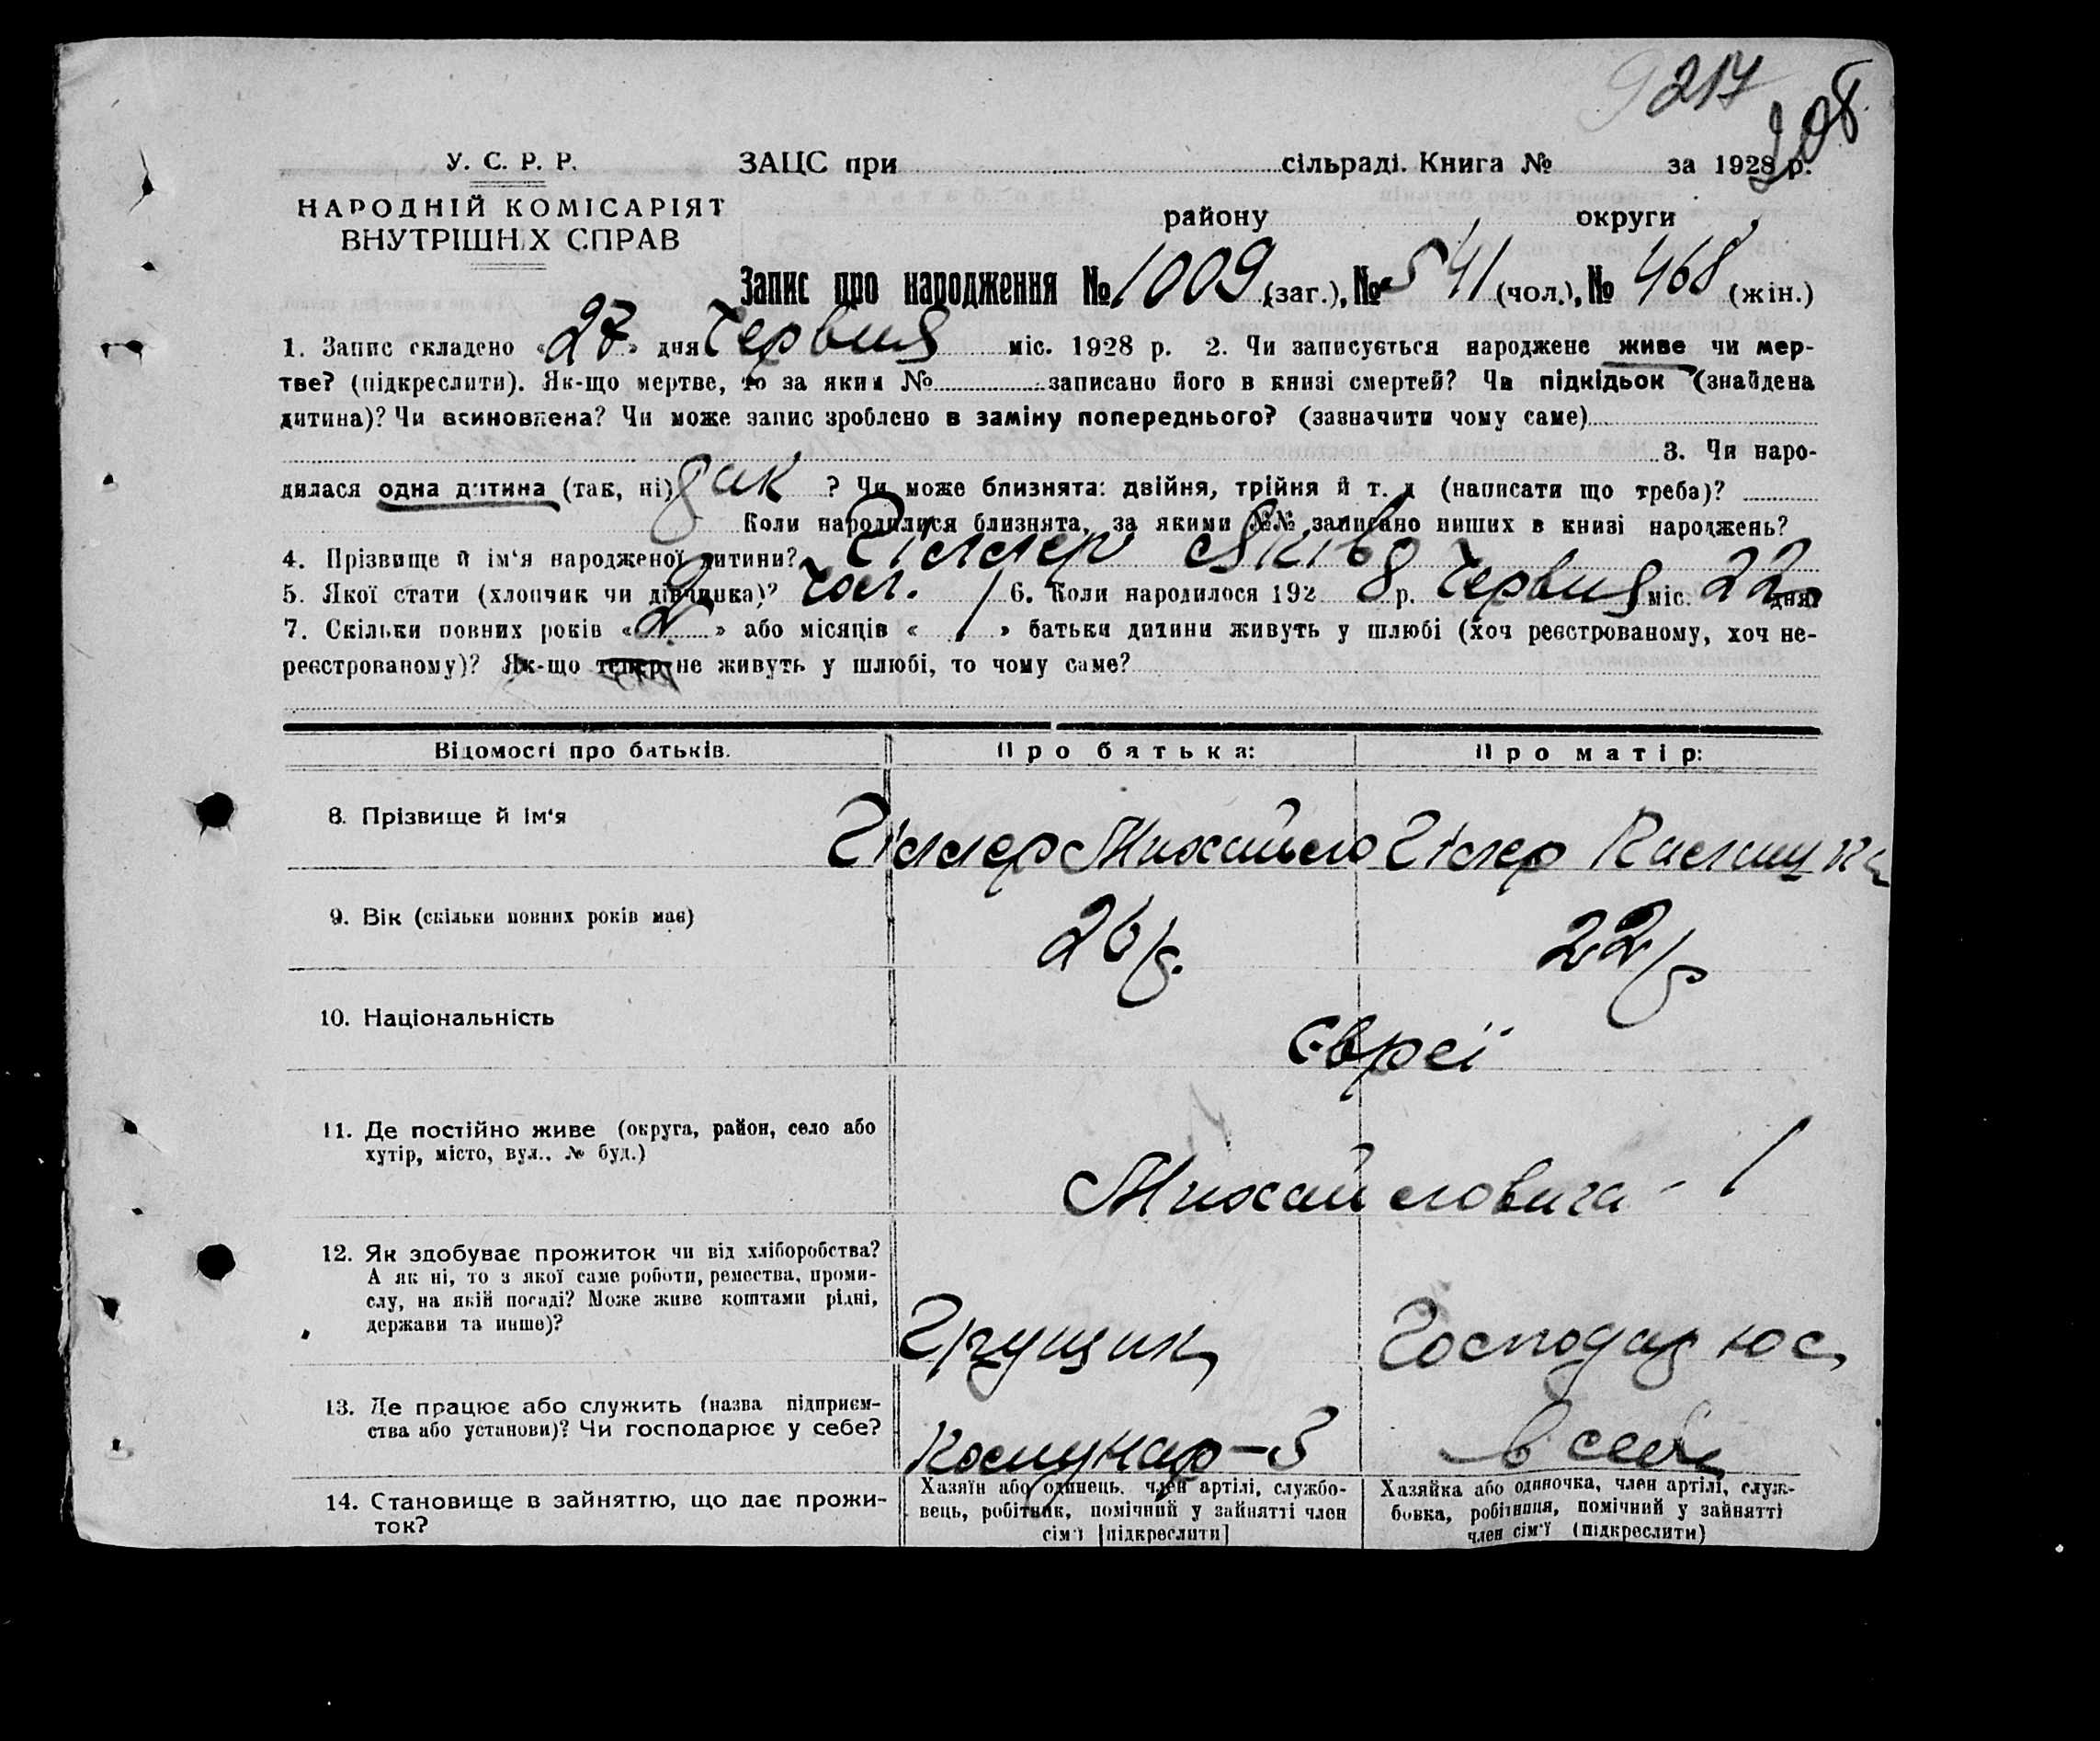 217
208
У. С. Р. Р.
ЗАЦС при сільраді. Книга № за 1928 р.
НАРОДНІЙ КОМІСАРІЯТ
ВНУТРІШНІХ СПРАВ
району округи
Запис про народження № 1009 (заг.), № 541 (чол.), № 468 (жін.)
1. Запис складено «27» дня Червня міс. 1928 р. 2. Чи записується народжене живе чи мер-
тве? (підкреслити). Як-що мертве, то за яким № записано його в книзі смертей? Чи підкідьок (знайдена
дитина)? Чи всиновлена? Чи може запис зроблено в заміну попереднього? (зазначити чому саме)
3. Чи наро-
дилася одна дитина (так, ні) так ? Чи може близнята: двійня, трійня й т. д (написати що треба)?
Коли народилися близнята, за якими №№ записано инших в книзі народжень?
4. Прізвище й ім'я народженої дитини? Гіллер Яків
5. Якої стати (хлопчик чи дівчинка)? Чол. 6. Коли народилося 1928 р. Червня міс. 22 дня?
7. Скільки повних років «2» або місяців « » батьки дитини живуть у шлюбі (хоч реєстрованому, хоч не-
реєстрованому)? Як-що тепер не живуть у шлюбі, то чому саме?
Відомості про батьків. Про батька: Про матір:
8. Прізвище й ім'я Гіллер Михайло Гілер
9. Вік (скільки повних років має) 26 р. 22 р
10. Національність Євреї
11. Де постійно живе (округа, район, село або
хутір, місто, вул., № буд.)
Михайловича - 1
12. Як здобуває прожиток чи від хліборобства?
А як ні, то з якої саме роботи, ремества, проми-
слу, на якій посаді? Може живе коштами рідні,
держави та инше)?
Грущик Господарює
13. Де працює або служить (назва підприєм-
ства або установи)? Чи господарює у себе?
Комунар-3 в себе
14. Становище в зайняттю, що дає прожи-
ток?
Хазяїн або одинець, член артілі, службо-
вець, робітник, помічний у зайнятті член
сім'ї [підкреслити]
Хазяйка або одиночка, член артілі, служ-
бовка, робітниця, помічний у зайнятті
член сім'ї (підкреслити)